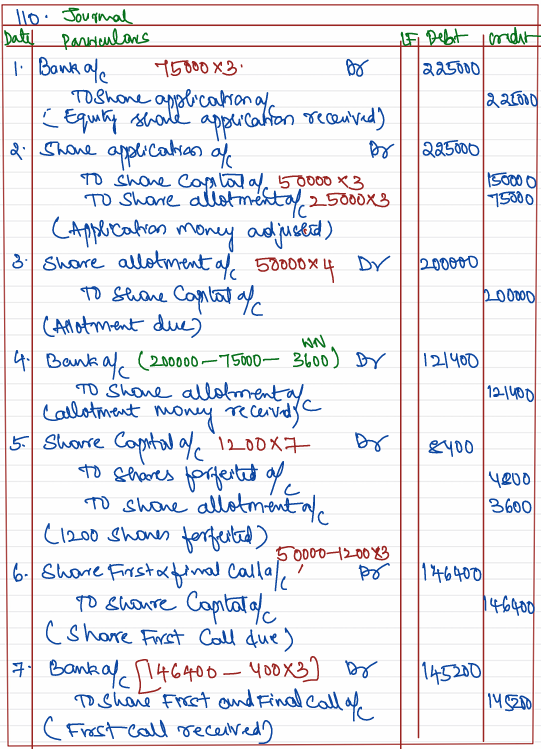 110. Journal
Date Particulars LF Debt Credit
1. Bank a/c 75000×3. Dr 225000
To Share application a/c 225000
(Equity share application received)
2. Share application a/c Dr 225000
To Share Capital a/c 50000×3 150000
To Share allotment a/c 25000×3 75000
(Application money adjusted)
3. Share allotment a/c 50000×4 Dr 200000
To Share Capital a/c 200000
(Allotment due)
WN
4. Bank a/c (200000-75000-3600) Dr 121400
To Share allotment a/c 121400
(allotment money received)
5. Share Capital a/c 1200×7 Dr 8400
To Shares forfeited a/c 4800
To Share allotment a/c 3600
(1200 Shares forfeited)
50000-1200×3
6. Share First & final Call a/c Dr 146400
To Share Capital a/c 146400
(Share First Call due)
7. Bank a/c [146400-400×3] Dr 145200
To Share First and Final Call a/c 145200
(First call received)